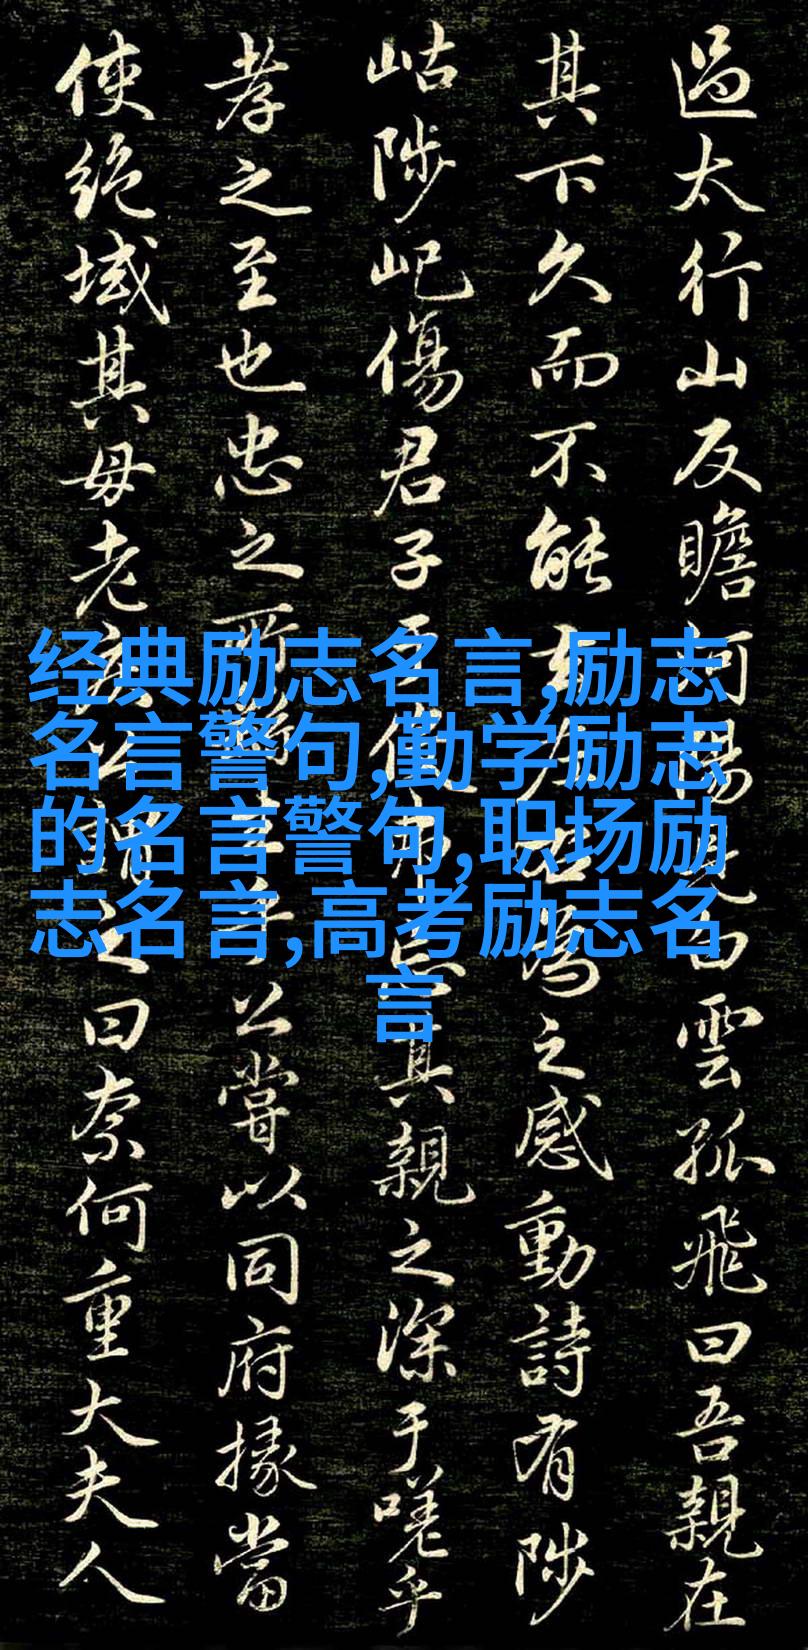 過太行山反瞻河陽見白雲孤飛曰吾親在
其下久而不能去左右為之感動詩有陟
岵陟屺傷君子于役弗忘其親之深于嗟乎
孝之至也忠之所生乎公嘗以同府掾當
使絕域其母老疾公謂之曰奈何重大夫人
经典励志名言,励志
名言警句,勤学励志
的名言警句,职场励
志名言,高考励志名
言